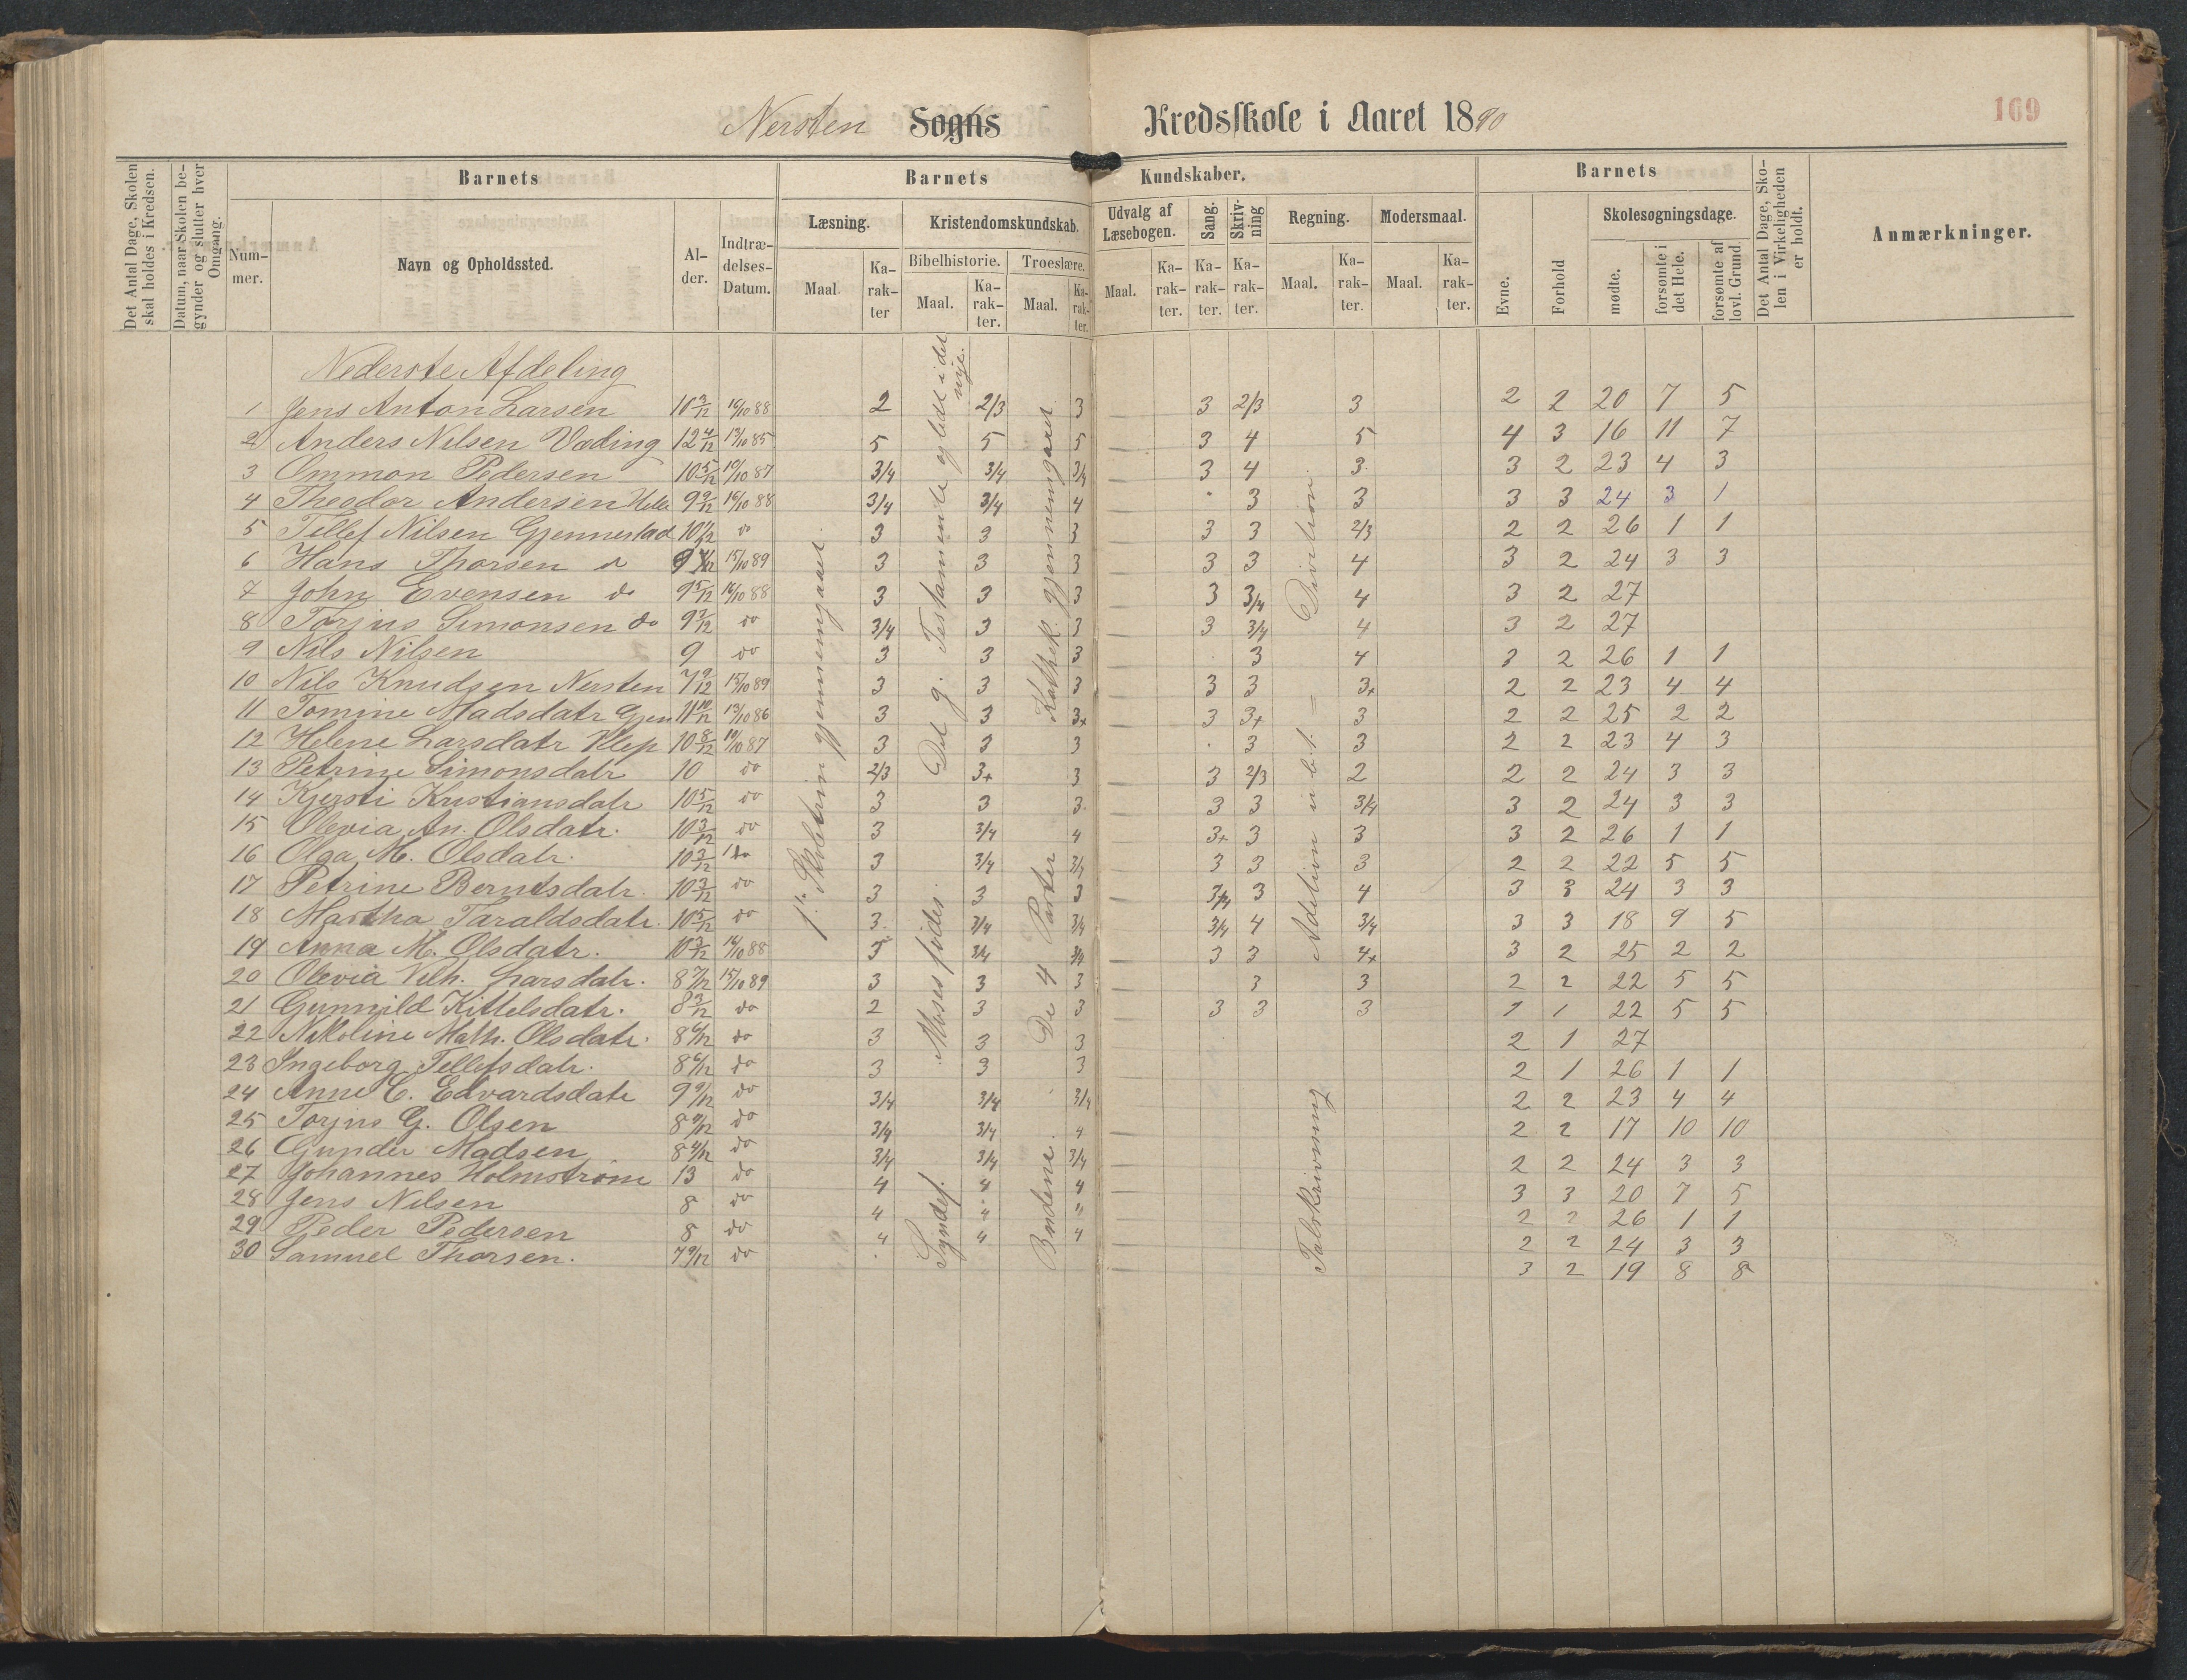 Nersten Sogns Kredsskole i Aaret 1890
169
Det Antal Dage, Skolen skal holdes i Kredsen.
Datum, naar Skolen begynder og slutter hver Omgang.
Barnets
Nummer.
Navn og Opholdssted.
Alder.
Indtrædelses-Datum.
Barnets Kundskaber.
Læsning.
Maal
Karakter
Kristendomskundskab.
Bibelhistorie.
Maal.
Karakter.
Troeslære.
Maal.
Karakter.
Udvalg af Læsebogen.
Maal.
Karakter.
Sang.
Karakter.
Skrivning
Karakter.
Regning.
Maal.
Karakter.
Modersmaal.
Maal.
Karakter.
Barnets
Evne.
Forhold
Skolesøgningsdage.
mødte.
forsømte i det Hele.
forsømte af lovl. Grund
Det Antal Dage, Skolen i Virkeligheden er holdt.
Anmærkninger.
Nederste Afdeling
1 Jens Anton Larsen 10 3/12 16/10 88 2 2/3 3 — 3 2/3 3 2 2 20 7 5
2 Anders Nilsen Væding 12 4/12 13/10 85 5 5 5 — 3 4 5 4 3 16 11 7
3 Ommon Pedersen 10 5/12 10/10 87 3/4 3/4 3/4 — 3 4 3 3 2 23 4 3
4 Theodor Andersen 9 9/12 16/10 88 3/4 3/4 4 — 3 3 3 3 24 3 1
5 Tellef Nilsen Gjennestad do 3 3 3 — 3 3 2/3 2 2 26 1 1
6 Hans Thorsen 15/10 89 3 3 3 — 3 3 4 3 2 24 3 3
7 John Evensen do 9 5/12 16/10 88 3 3 3 — 3 3/4 4 3 2 27
8 Torjus Simonsen do do 3/4 3 3 — 3 3/4 4 3 2 27
9 Nils Nilsen 9 do 3 3 3 — 3 4 3 2 26 1 1
10 Nils Knudsen Nersten 7 9/12 15/10 89 3 3 3 — 3 3 3+ 2 2 23 4 4
11 Tomine Madsdatr Gjen 11 10/12 13/10 86 3 3 3+ — 3 3+ 3 2 2 25 2 2
12 Helene Larsdatr Klep 10 8/12 10/10 87 3 3 3 — 3 3 2 2 23 4 3
13 Petrine Simonsdatr 10 do 2/3 3+ 3 — 3 2/3 2 2 2 24 3 3
14 Kjersti Kristiansdatr 10 5/12 do 3 3 3 — 3 3 3/4 3 2 24 3 3
15 Olevia An. Olsdatr. 10 3/12 do 3 3/4 4 — 3+ 3 3 3 2 26 1 1
16 Olga M. Olsdatr. 10 3/12 do 3 3/4 3/4 — 3 3 3 2 2 22 5 5
17 Petrine Berntsdatr. 10 3/12 do 3 3 3 — 3/4 3 4 3 3 24 3 3
18 Martha Taraldsdatr. 10 5/12 do 3 3/4 3/4 — 3/4 4 3/4 3 3 18 9 5
19 Anna M. Olsdatr. 10 3/12 16/10 88 3 3/4 3/4 — 3 3 4+ 3 2 25 2 2
20 Olevia Vilh. Larsdatr. 8 7/12 15/10 89 3 3 3 — 3 3 2 2 22 5 5
21 Gunnild Kittelsdatr. 8 3/12 do 2 3 3 — 3 3 3 1 1 22 5 5
22 Nikoline Math. Olsdatr. 8 6/12 do 3 3 3 — 2 1 27
23 Ingeborg Tellefsdatr. 8 6/12 do 3 3 3 — 2 1 26 1 1
24 Anne C. Edvardsdatr 9 9/12 do 3/4 3/4 3/4 — 2 2 23 4 4
25 Torjus G. Olsen do 3/4 3/4 4 — 2 2 17 10 10
26 Gunder Madsen do 3/4 3/4 3/4 — 2 2 24 3 3
27 Johannes Holmstrøm 13 do 4 4 4 — 3 3 20 7 5
28 Jens Nilsen 8 do 4 " " — 2 2 26 1 1
29 Peder Pedersen 8 do 4 4 4 — 2 2 24 3 3
30 Samuel Thorsen. 7 9/12 do — 3 2 19 8 8
1ste Skoletrin gjennemgaaet.
Det g. Testamente og lidt i det nye.
Moses fødes.
Syndef.
Kathek. gjennemgaaet
De 4 Parter
Budene.
Division
Adition
Talskrivning